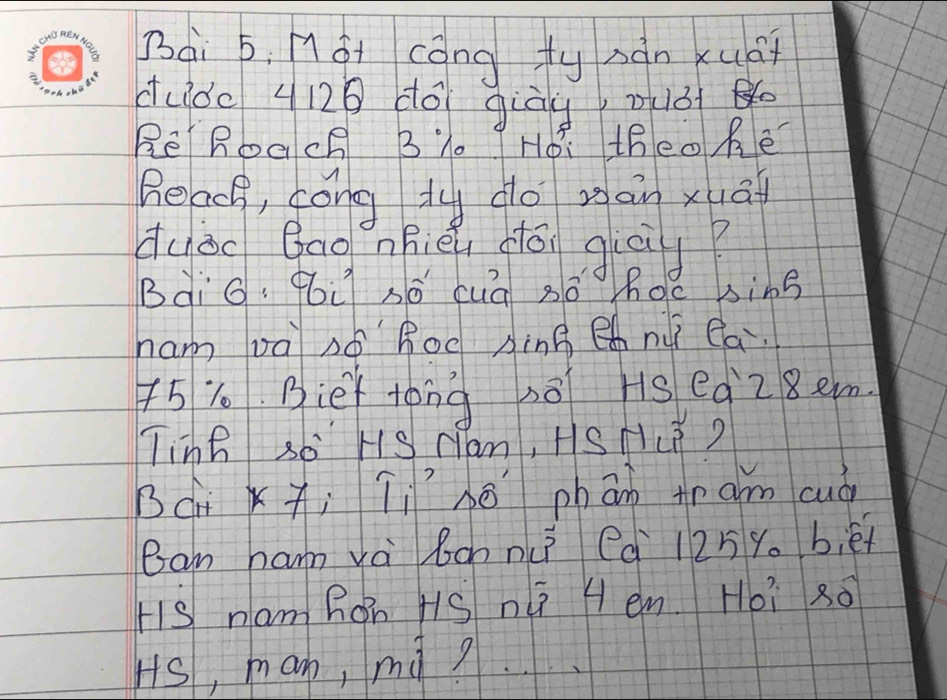 NẮN CHỮ RÈN NGƯỜI
Vở sạch chữ đẹp
Bài 5: Một công ty sản xuất
được 4120 đôi giày, vượt
kế hoạch 3%. Hỏi theo kế
hoạch, công ty đó sản xuất
được bao nhiêu đôi giày?
Bài 6: Tỉ số của số học sinh
nam và số học sinh nữ là
75%. Biết tổng số HS là 28 em.
Tính số HS Nam, HS Nữ?
Bài 7: Tỉ số phần trăm của
bạn nam và bạn nữ là 125% biết
HS nam hơn HS nữ 4 em. Hỏi số
HS, man, mữ? ....